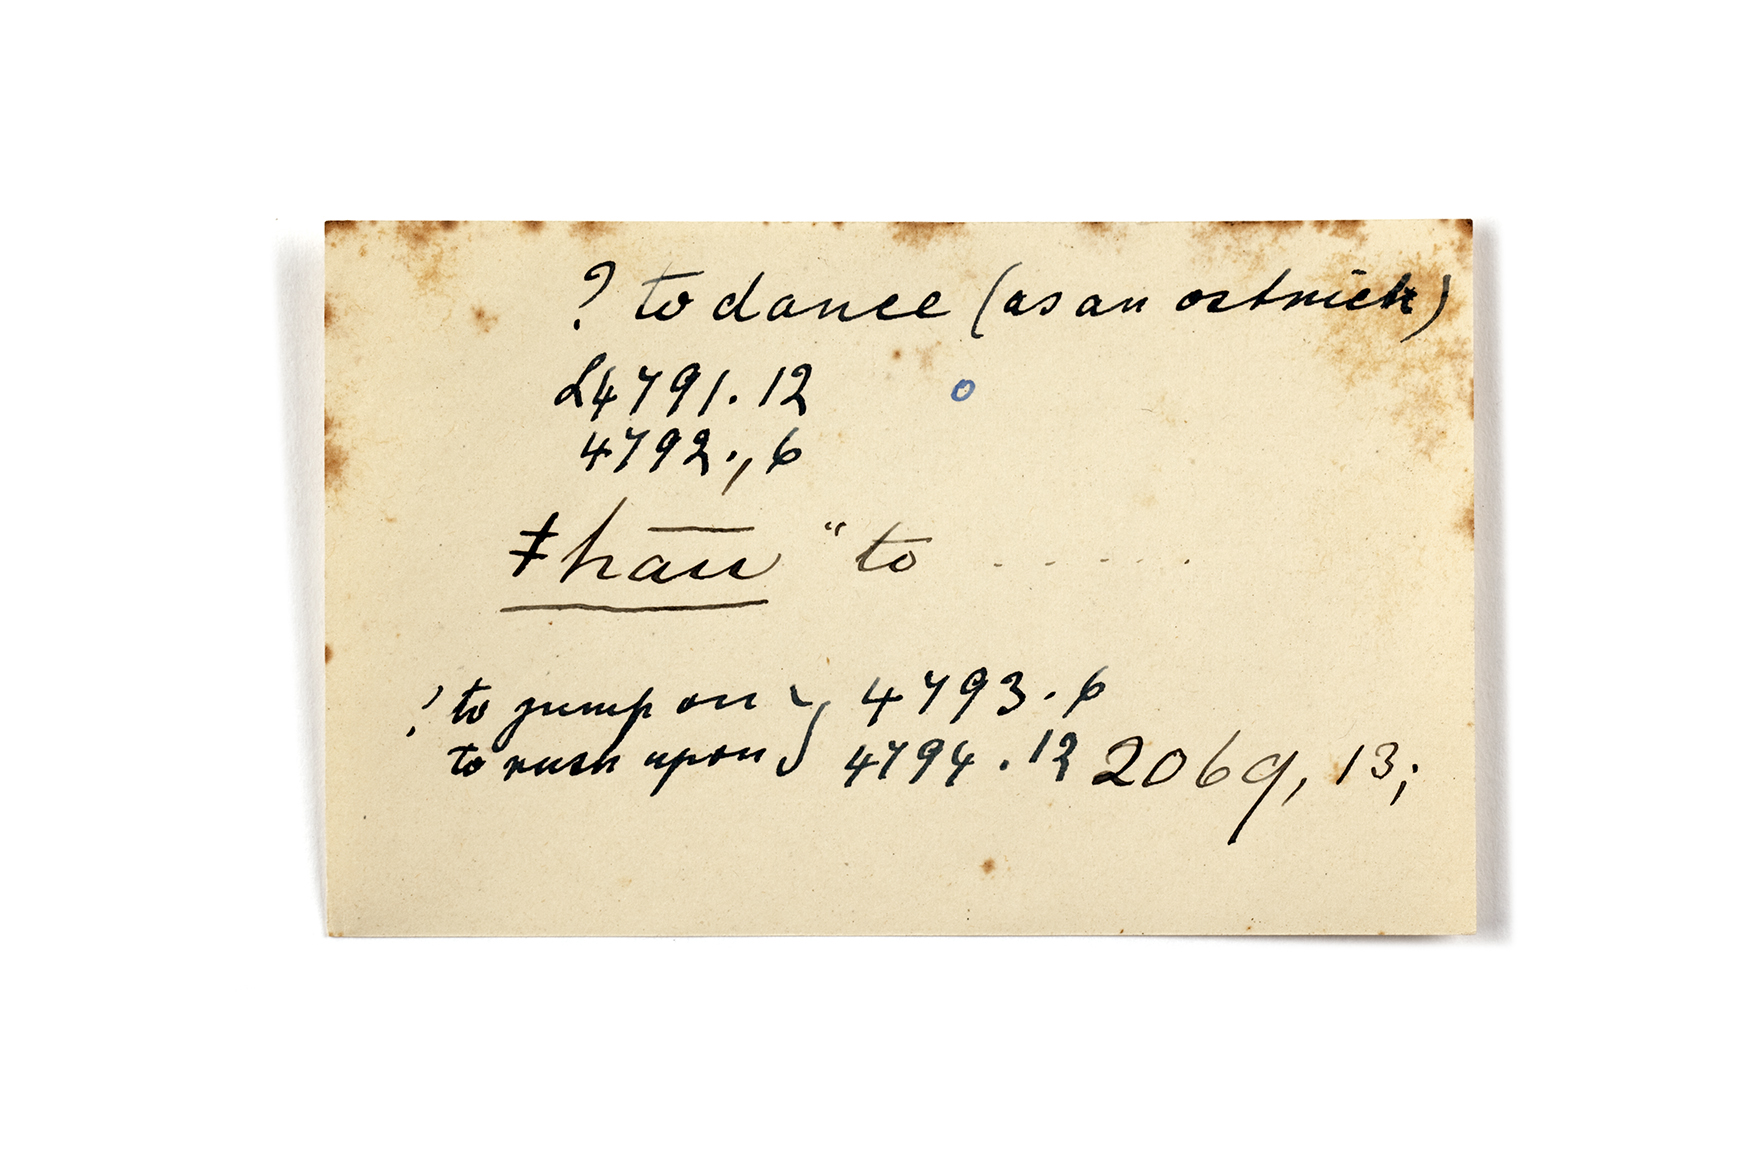 ? to dance (as an ostrich)
L4791.12 o
4792., 6
ǂhau̅ " to . . . . . .
? to jump on } 4793.6
to rush upon } 4794.12 2069, 13;